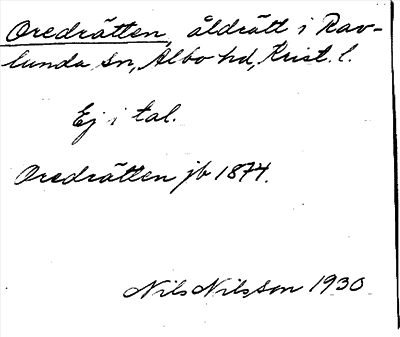 Oredrätten, åldrätt i Rav-
lunda sn, Albo hd, Krist. l.
Ej i tal.
Oredrätten jb 1874.
Nils Nilsson 1930